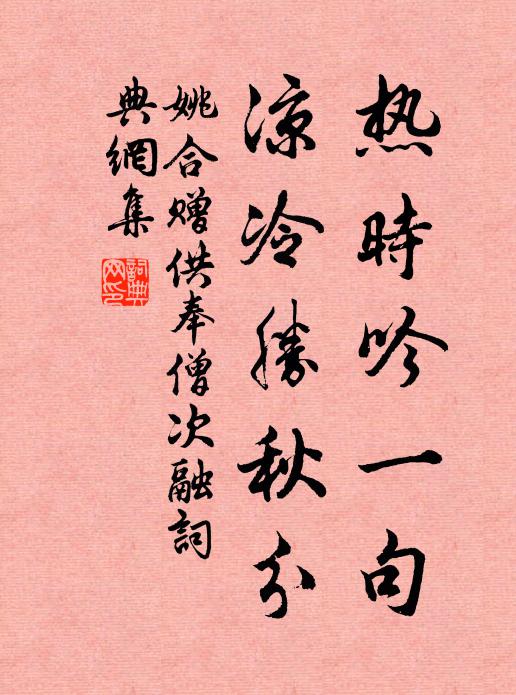 热時吟一句
凉冷勝秋分
姚合赠供奉僧次融詞
典網集
詞典
网印